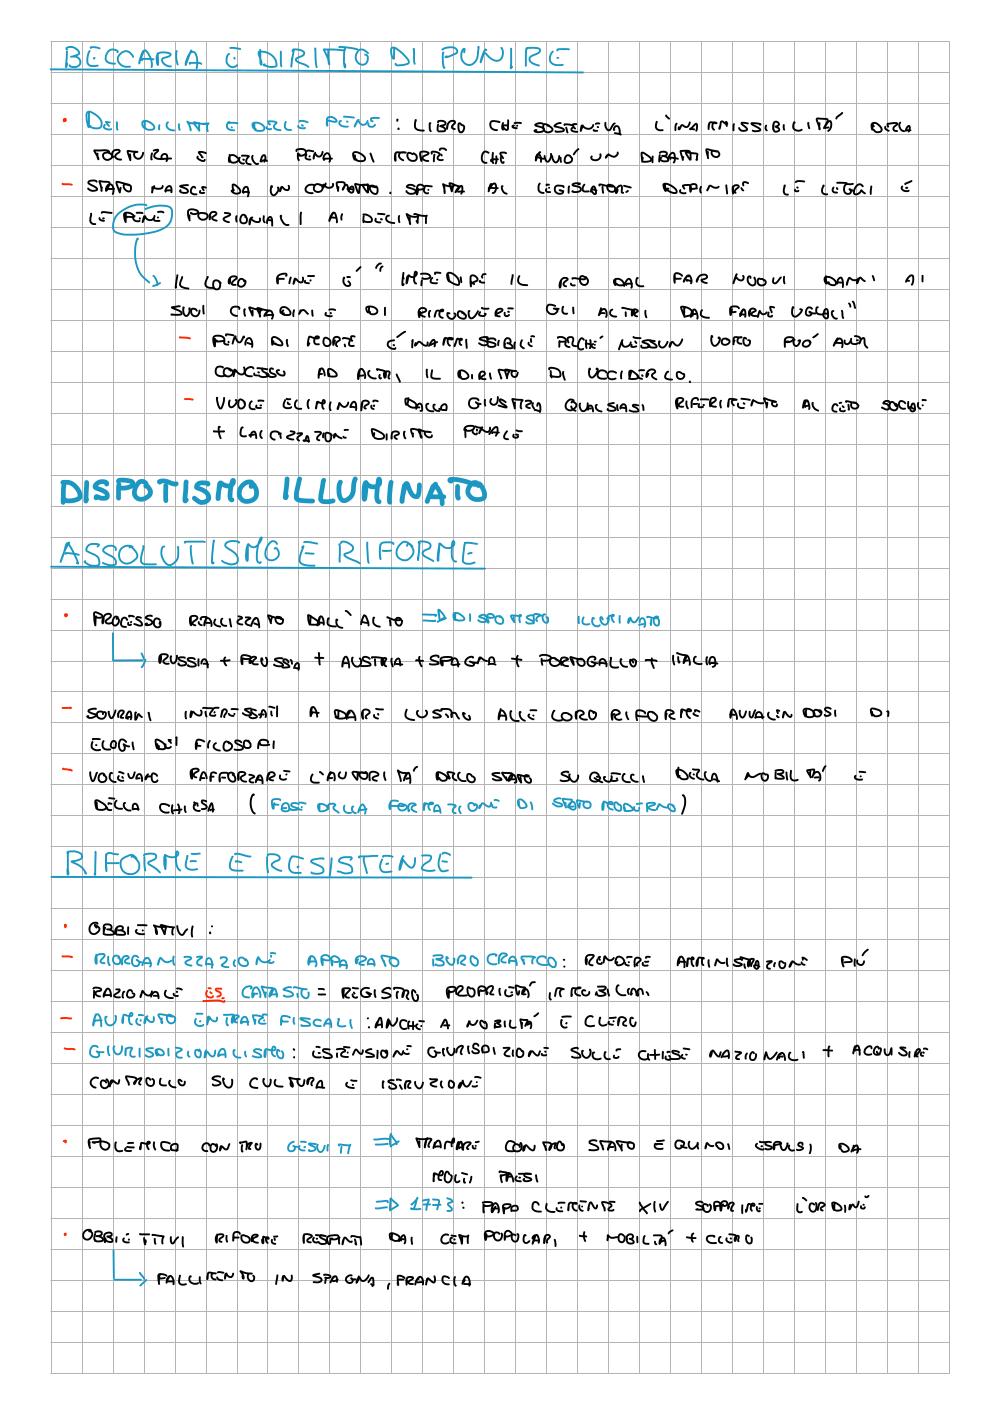 BECCARIA E DIRITTO DI PUNIRE
• DEI DILITTI E DELLE PENE : LIBRO CHE SOSTENEVA L'INAMMISSIBILITA' DELLA
TORTURA E DELLA PENA DI MORTE CHE AVVIO' UN DIBATTITO
– STATO NASCE DA UN CONTRATTO. SPETTA AL LEGISLATORE DEFINIRE LE LEGGI E
LE PENE PORZIONALI AI DELITTI
IL LORO FINE E' " IMPEDIRE IL REO DAL FAR NUOVI DANNI AI
SUOI CITTADINI E DI RIMUOVERE GLI ALTRI DAL FARNE UGUALI"
– PENA DI MORTE E' INAMMISSIBILE PERCHE' NESSUN UOMO PUO' AVER
CONCESSO AD ALTRI IL DIRITTO DI UCCIDERLO.
– VUOLE ELIMINARE DALLA GIUSTIZIA QUALSIASI RIFERIMENTO AL CETO SOCIALE
+ LAICIZZAZIONE DIRITTO PENALE
DISPOTISMO ILLUMINATO
ASSOLUTISMO E RIFORME
• PROCESSO REALIZZATO DALL'ALTO ⇒ DISPOTISMO ILLUMINATO
RUSSIA + PRUSSIA + AUSTRIA + SPAGNA + PORTOGALLO + ITALIA
– SOVRANI INTERESSATI A DARE LUSTRO ALLE LORO RIFORME AVVALENDOSI DI
ELOGI DEI FILOSOFI
– VOLEVANO RAFFORZARE L'AUTORITA' DELLO STATO SU QUELLI DELLA NOBILTA' E
DELLA CHIESA ( FASE DELLA FORMAZIONE DI STATO MODERNO)
RIFORME E RESISTENZE
• OBBIETTIVI :
– RIORGANIZZAZIONE APPARATO BUROCRATICO : RENDERE AMMINISTRAZIONE PIÚ
RAZIONALE ES. CATASTO = REGISTRO PROPRIETA' IMMOBILIARI.
– AUMENTO ENTRATE FISCALI : ANCHE A NOBILTA' E CLERO
– GIURISDIZIONALISMO : ESTENSIONE GIURISDIZIONE SULLE CHIESE NAZIONALI + ACQUISIRE
CONTROLLO SU CULTURA E ISTRUZIONE
• POLEMICA CONTRO GESUITI ⇒ TRAMARE CONTRO STATO E QUINDI ESPULSI DA
MOLTI PAESI
⇒ 1773 : PAPA CLEMENTE XIV SOPPRIME L'ORDINE
• OBBIETTIVI RIFORME RESPINTI DAI CETI POPOLARI + NOBILTA' + CLERO
FALLIMENTO IN SPAGNA, FRANCIA